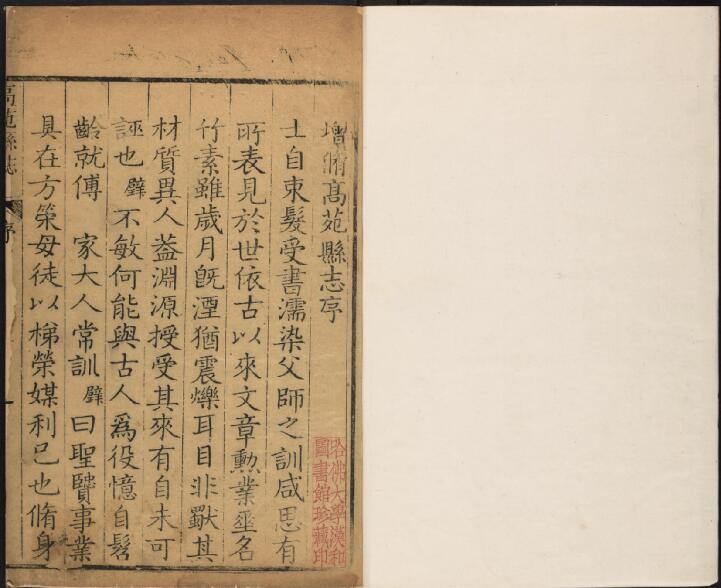 增脩高苑縣志序
士自束髮受書濡染父師之訓咸思有
所表見於世依古以來文章勲業垂名
竹素雖歲月旣湮猶震爍耳目非獸其
材質異人葢淵源授受其來有自未可
誣也璧不敏何能與古人爲役憶自髫
齡就傅 家大人常訓璧曰聖賢事業
具在方策毋徒以梯榮媒利已也脩身
高苑縣志 序
哈佛大學漢和
圖書館珍藏印